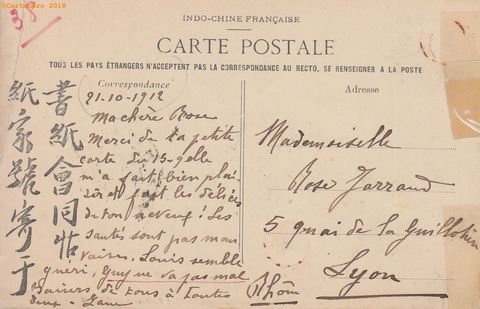 ©Cartocaro 2018
38
INDO-CHINE FRANÇAISE
CARTE POSTALE
TOUS LES PAYS ÉTRANGERS N'ACCEPTENT PAS LA CORRESPONDANCE AU RECTO, SE RENSEIGNER A LA POSTE
Correspondance
21-10-1912
Ma chère Rose
Merci de ta petite
carte du 15-7elle
m'a fait bien plai-
sir et fait les délices
de ton neveu! Les
santés sont pas mau
vaises, Louis semble
guéri, Guy ne va pas mal
Baisers de tous à toutes
deux -
書紙會同
紙家號寄于
Adresse
Mademoiselle
Rose Jarrand
5 quai de la Guillotière
Lyon
Rhône